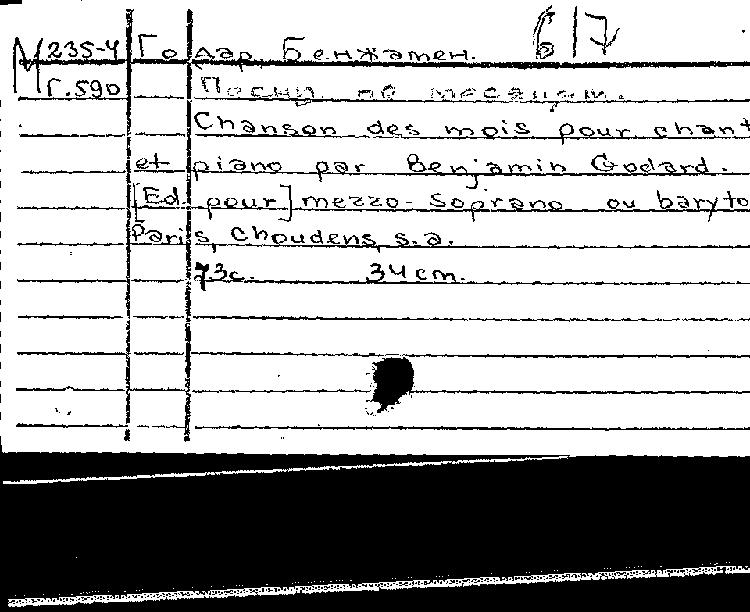 М 235-4 Годар, Бенжамен. б/17
Г.590 Песни по месяцам.
Chanson des mois pour chant
et piano par Benjamin Godard.
[Ed. pour] mezzo-soprano ou baryto
Paris, Choudens, s.a.
73c. 34cm.